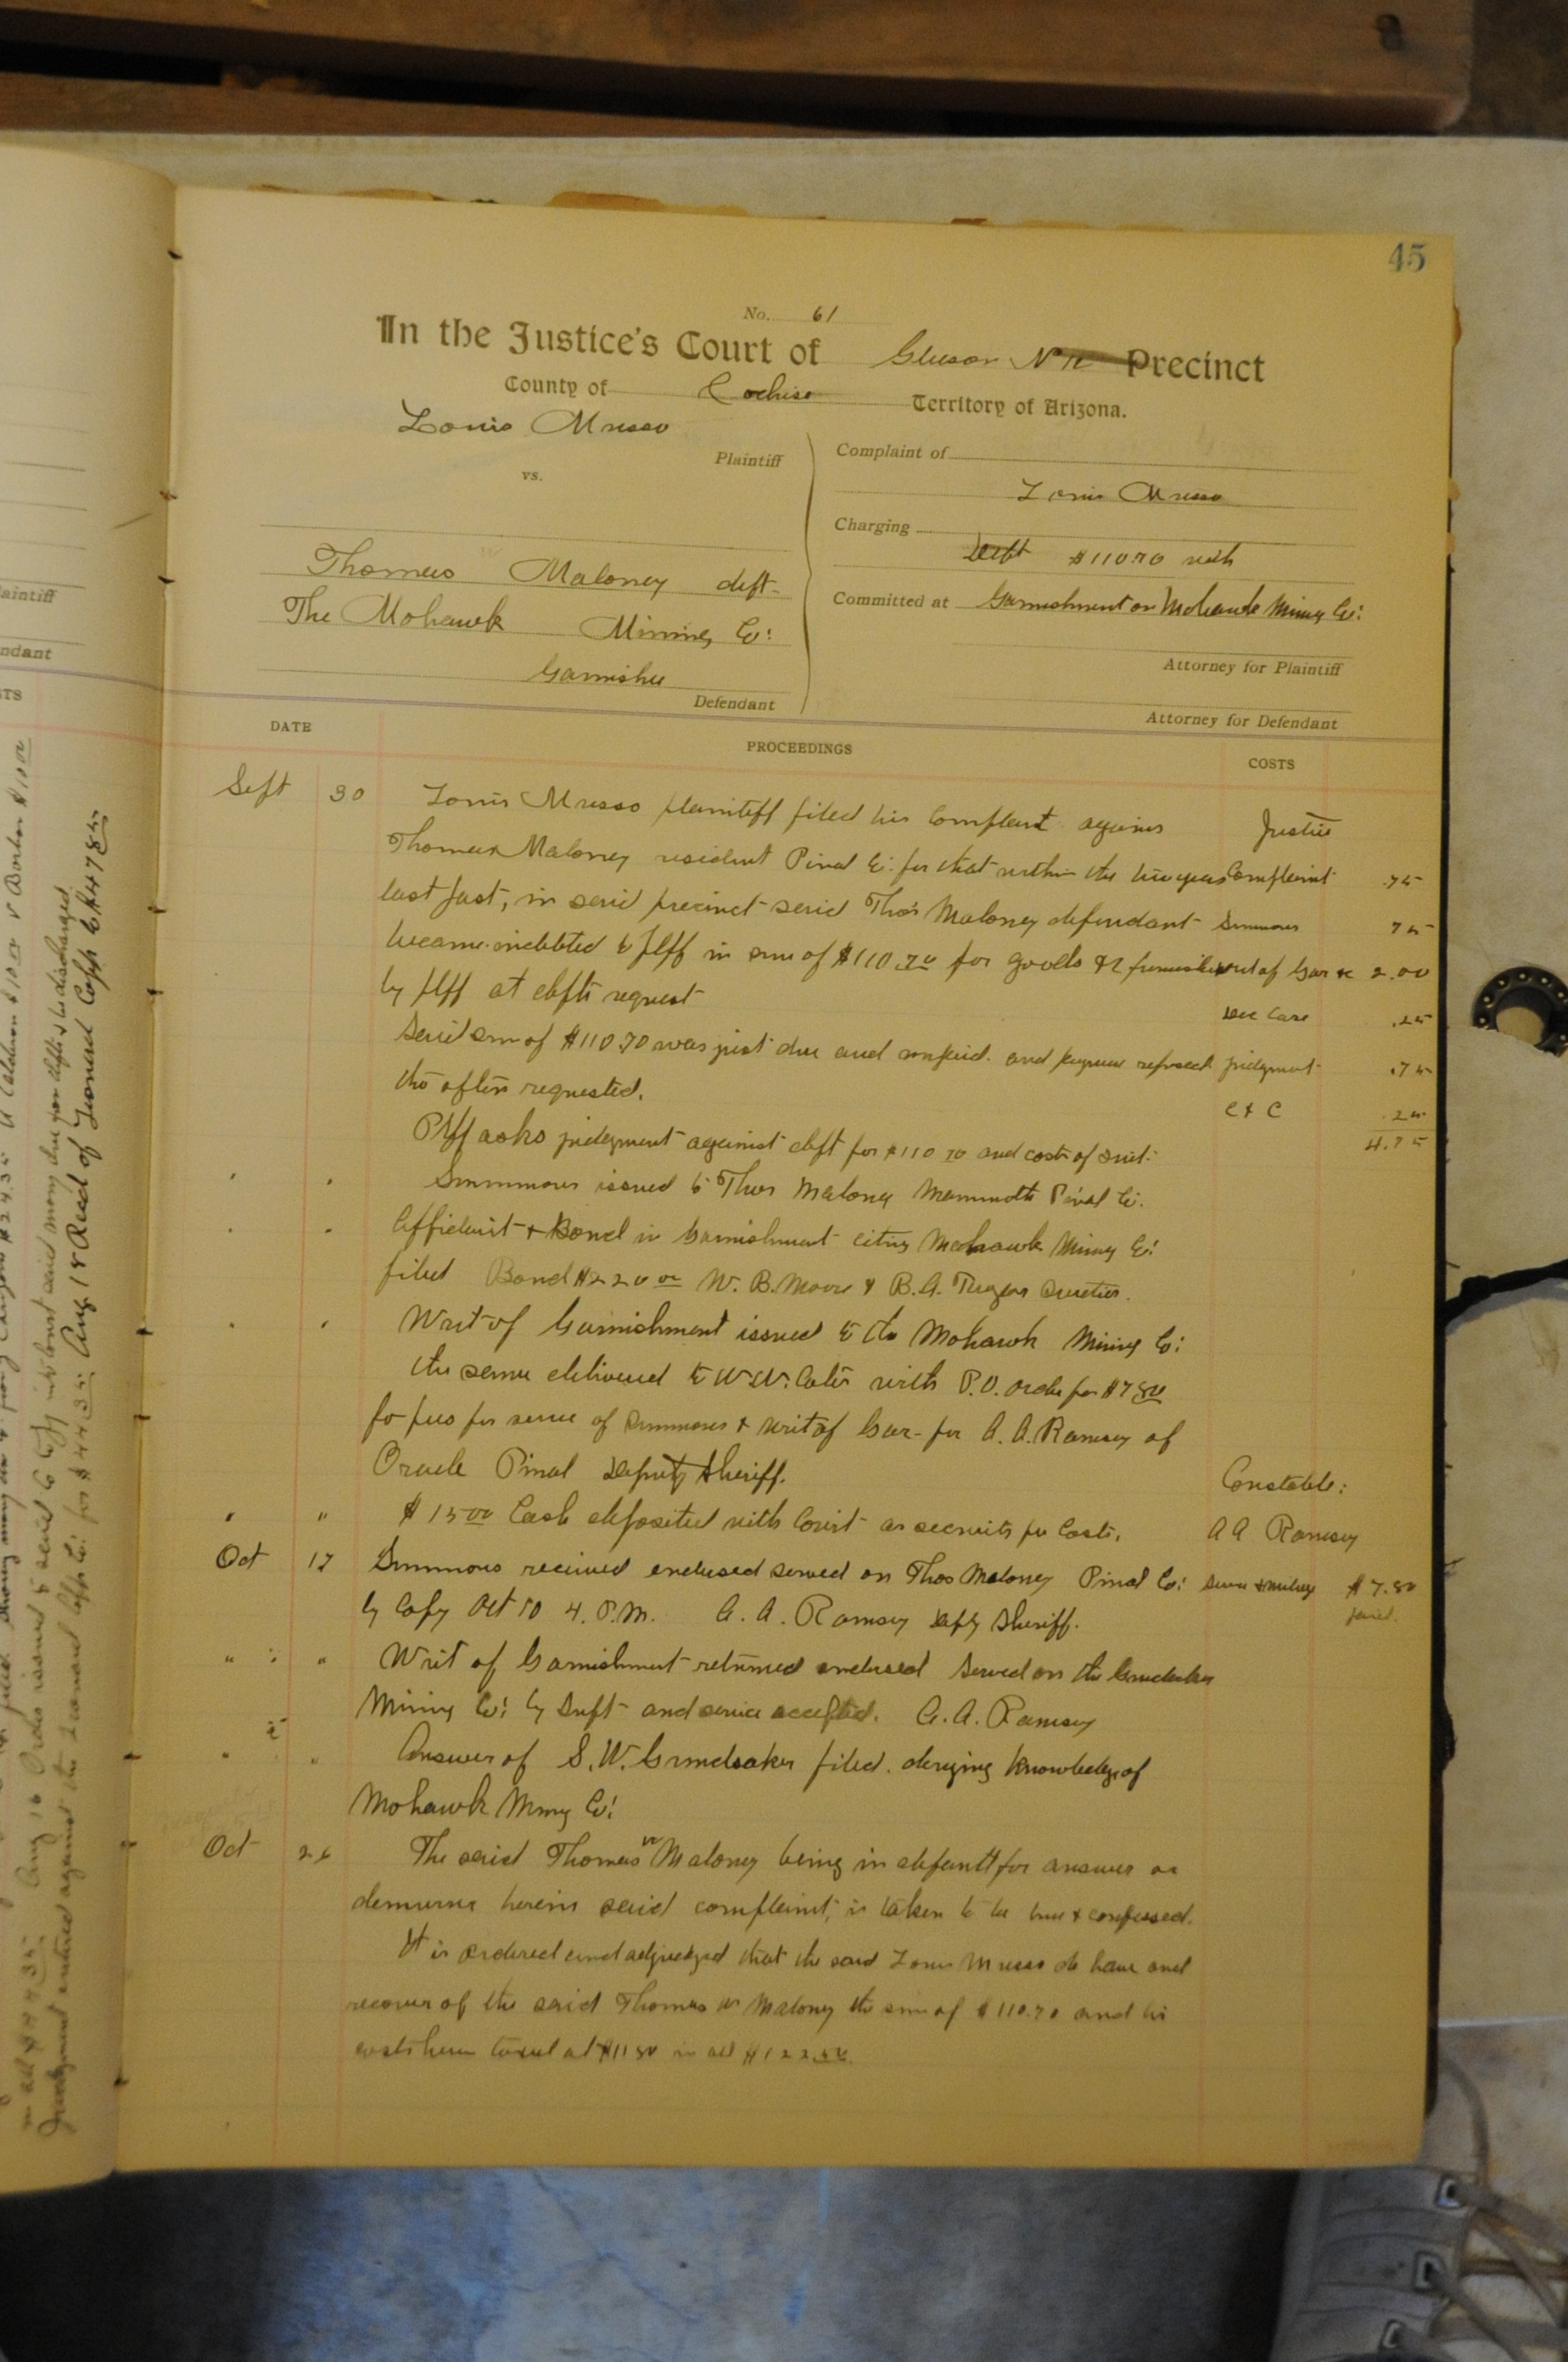 45
No. 61
In the Justice's Court of Gleeson Precinct
County of Cochise Territory of Arizona.
Louis Musso
Plaintiff
vs.
Thomas Maloney deft-
The Mohawk Mining Co:
Garnishee
Defendant
Complaint of
Louis Musso
Charging
Debt $110.70 with
Committed at Garnishment on Mohawk Mining Co:
Attorney for Plaintiff
Attorney for Defendant
DATE
PROCEEDINGS
COSTS
Sept 30 Louis Musso plaintiff filed his Complaint against
Thomas Maloney resident Pinal Co: for that within the two years
last past, in said precinct said Thos Maloney defendant
became indebted to plff in sum of $110.70 for goods &c furnished
by plff at defts request
Said sum of $110.70 was just due and unpaid. and payment refused
tho often requested.
Plff asks judgment against deft for $110 70 and costs of suit.
Summons issued to Thos Maloney Mammoth Pinal Co:
Affidavit + Bond in Garnishment citing Mohawk Mining Co:
filed Bond $220 00 W. B. Moore & B. A. Sureties.
Writ of Garnishment issued to the Mohawk Mining Co:
the same delivered to W. W. with P.O. order for $7 80
fo fees for service of summons + writ of Gar- for A. A. Ramsey of
Oracle Pinal Deputy Sheriff.
" $15 00 Cash deposited with Court as security for Costs.
Oct 17 Summons received endorsed served on Thos Maloney Pinal Co:
by Copy Oct 10 4. P.M. A. A. Ramsey Depty Sheriff.
" " Writ of Garnishment returned endorsed served on the
Mining Co: by Supt and service accepted. A. A. Ramsey
" " Answer of S. W. filed. denying knowledge of
Mohawk Mining Co:
Oct 26 The said Thomas W Maloney being in default for answer or
demurrer herein said complaint, is taken to be true & confessed.
It is ordered and adjudged that the said Louis Musso do have and
recover of the said Thomas W Maloney the sum of $110.70 and his
costs herein taxed at $11 80 in all $122.50
Justice
Complaint .75
Summons 75
writ of Gar &c 2.00
Doc Case .25
judgment .75
4.75
Constable:
A A Ramsey
Service + mileage $7.80
paid.